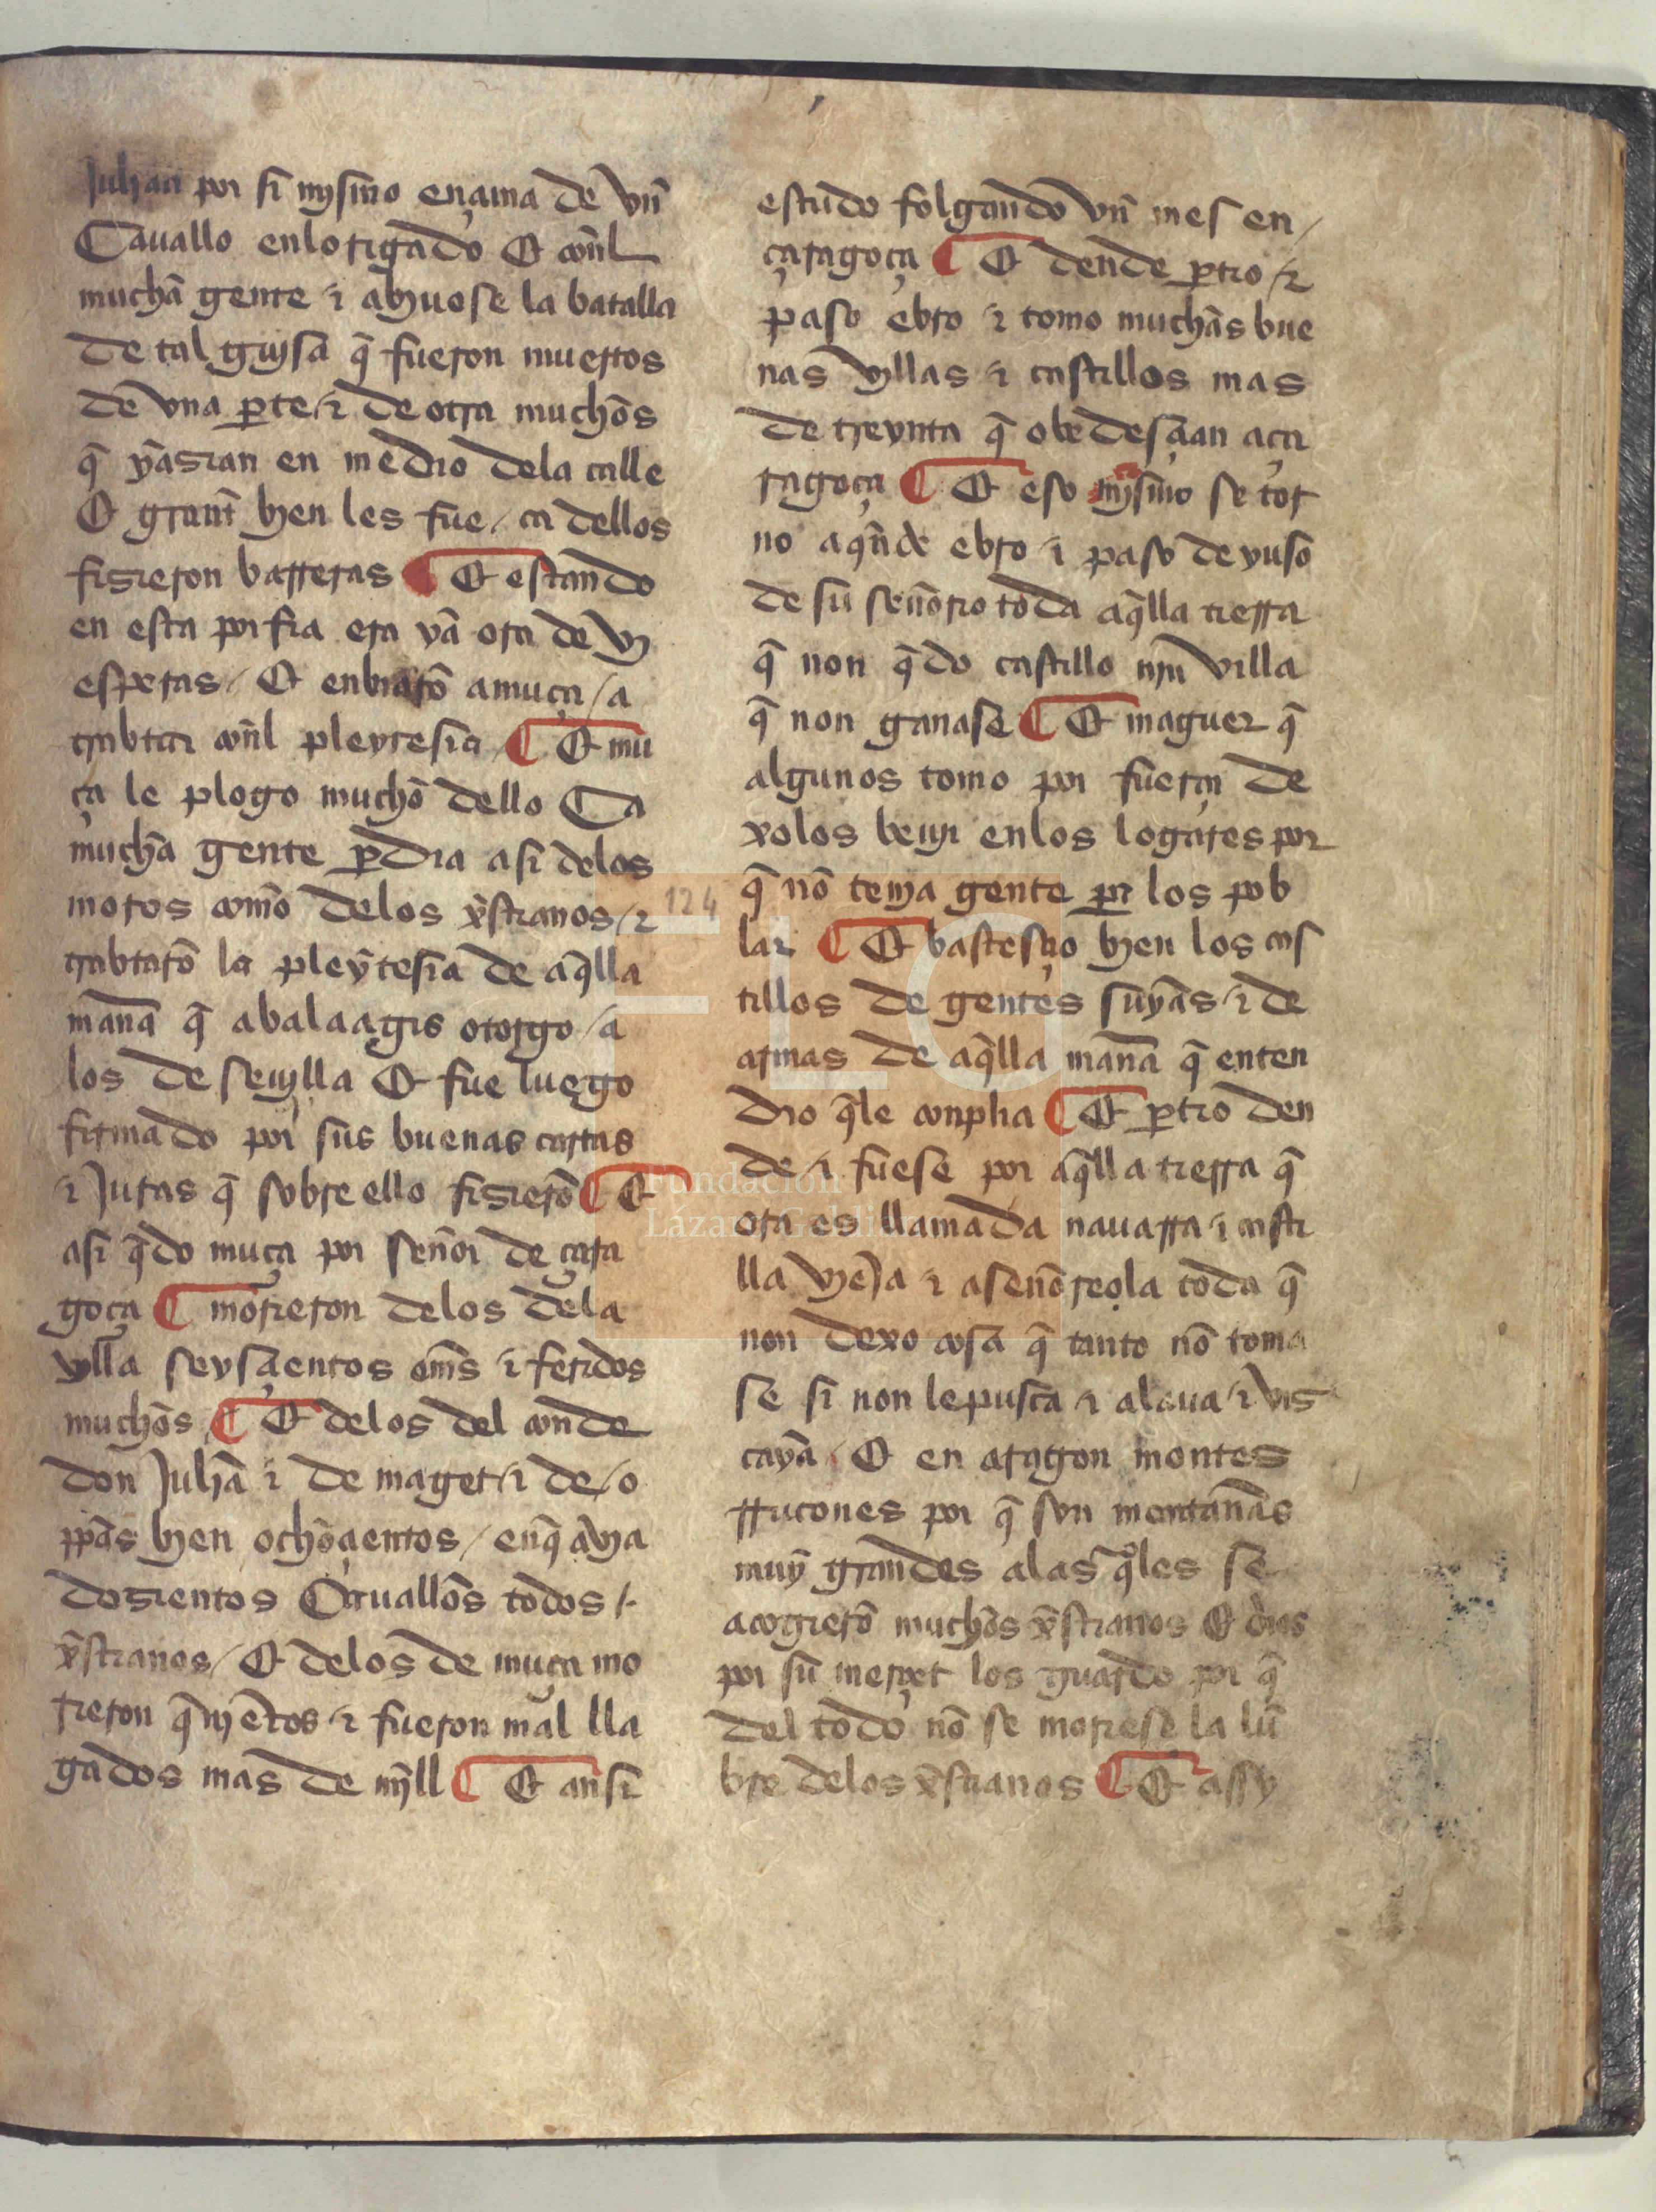 Julian por si mysmo ençima de vn̄
Cauallo enlorigado Et con̄l
muchā gente ⁊ ahuuose la batalla
de tal guysa q̄ fueron muertos
de vna ꝑte ⁊ de otra muchōs
q̄ yāsian en medio dela calle
Et grant̄ byen les fue / ca dellos
fisieron barreras ¶ Et estando
en esta porfia era yā ora de
esperas / Et enbiarō amuça / a
trabtar con̄l pleytesia ¶ Et mu
ça le plogo muchō dello Ca
muchā gente ꝑdia asi delos
moros comō delos xp̄istianos / ⁊
trabtarō la pleȳtesia de aq̄lla
manā q̄ abalaagis otorgo / a
los de seuylla Et fue luego
firmado por sus buenas cartas
⁊ Juras q̄ sobre ello fisierō ¶ Et
asi q̄do muça por señor de çara
goça ¶ morieron delos dela
vylla seysçientos om̄s ⁊ feridos
muchōs ¶ Et delos del conde
don Juliā ⁊ de maget ⁊ de / o
pp̄as byen ochōçientos / enq̄ avya
dosientos Cauallōs todos /
xp̄istianos / Et delos de muça mo
rieron q̄nyētos ⁊ fueron mal lla
gados mas de myll ¶ Et ansi
estudo folgando vn̄ mes en /
çaragoça ¶ Et dende ꝑtio / ⁊
paso ebro ⁊ tomo muchās bue
nas vyllas ⁊ castillos mas
de treynta q̄ obedesçian aça
ragoça ¶ Et eso mysmo se tor
no aq̄nde ebro ⁊ paso de yuso
de su señorio toda aq̄lla tierra
q̄ non q̄do castillo nin villa
q̄ non ganase ¶ Et maguer q̄
algunos tomo por fuerça de
xolos beuir enlos logares por
q̄ nō tenya gente ꝑa los pob
lar ¶ Et bastesçio byen los cas
tillos de gentes suyās ⁊ de
armas de aq̄lla manā q̄ enten
dio q̄le conplia ¶ Et ꝑtio den
de ⁊ fuese por aq̄lla tierra q̄
ora es llamada nauarra ⁊ casti
lla vyeJa ⁊ aseñoreola toda q̄
non dexo cosa q̄ tanto nō toma
se si non lepusca ⁊ alaua ⁊ vis
cayā / Et en aragon montes
rrucones por q̄ son montañās
muȳ grandes alas q̄les se
acogierō muchōs xp̄istianos Et dios
por su merçet los guardo por q̄
del todo nō se moriese la lū
bre delos xp̄istianos ¶ Et assy
124
FLG
Fundación
Lázaro Galdiano